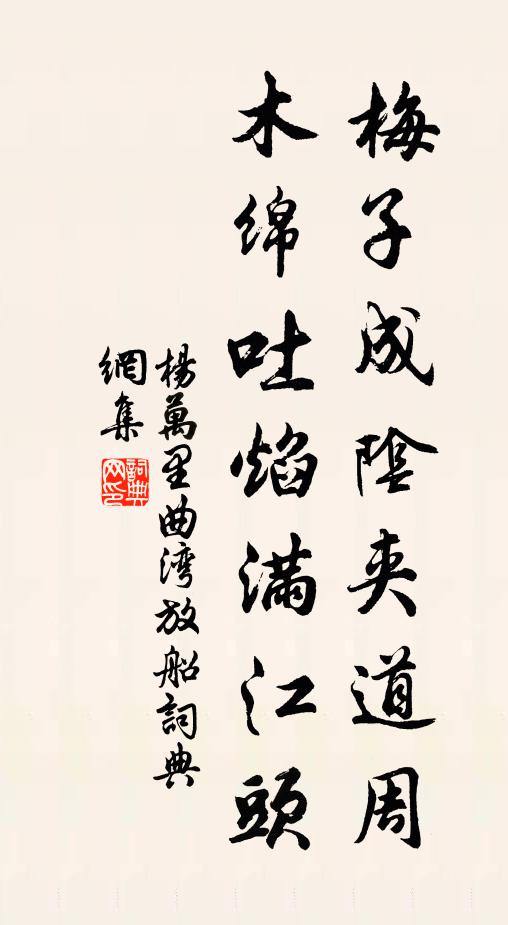 梅子成陰夹道周
木绵吐焰满江頭
楊萬里曲湾放船詞典
網集
詞典网印